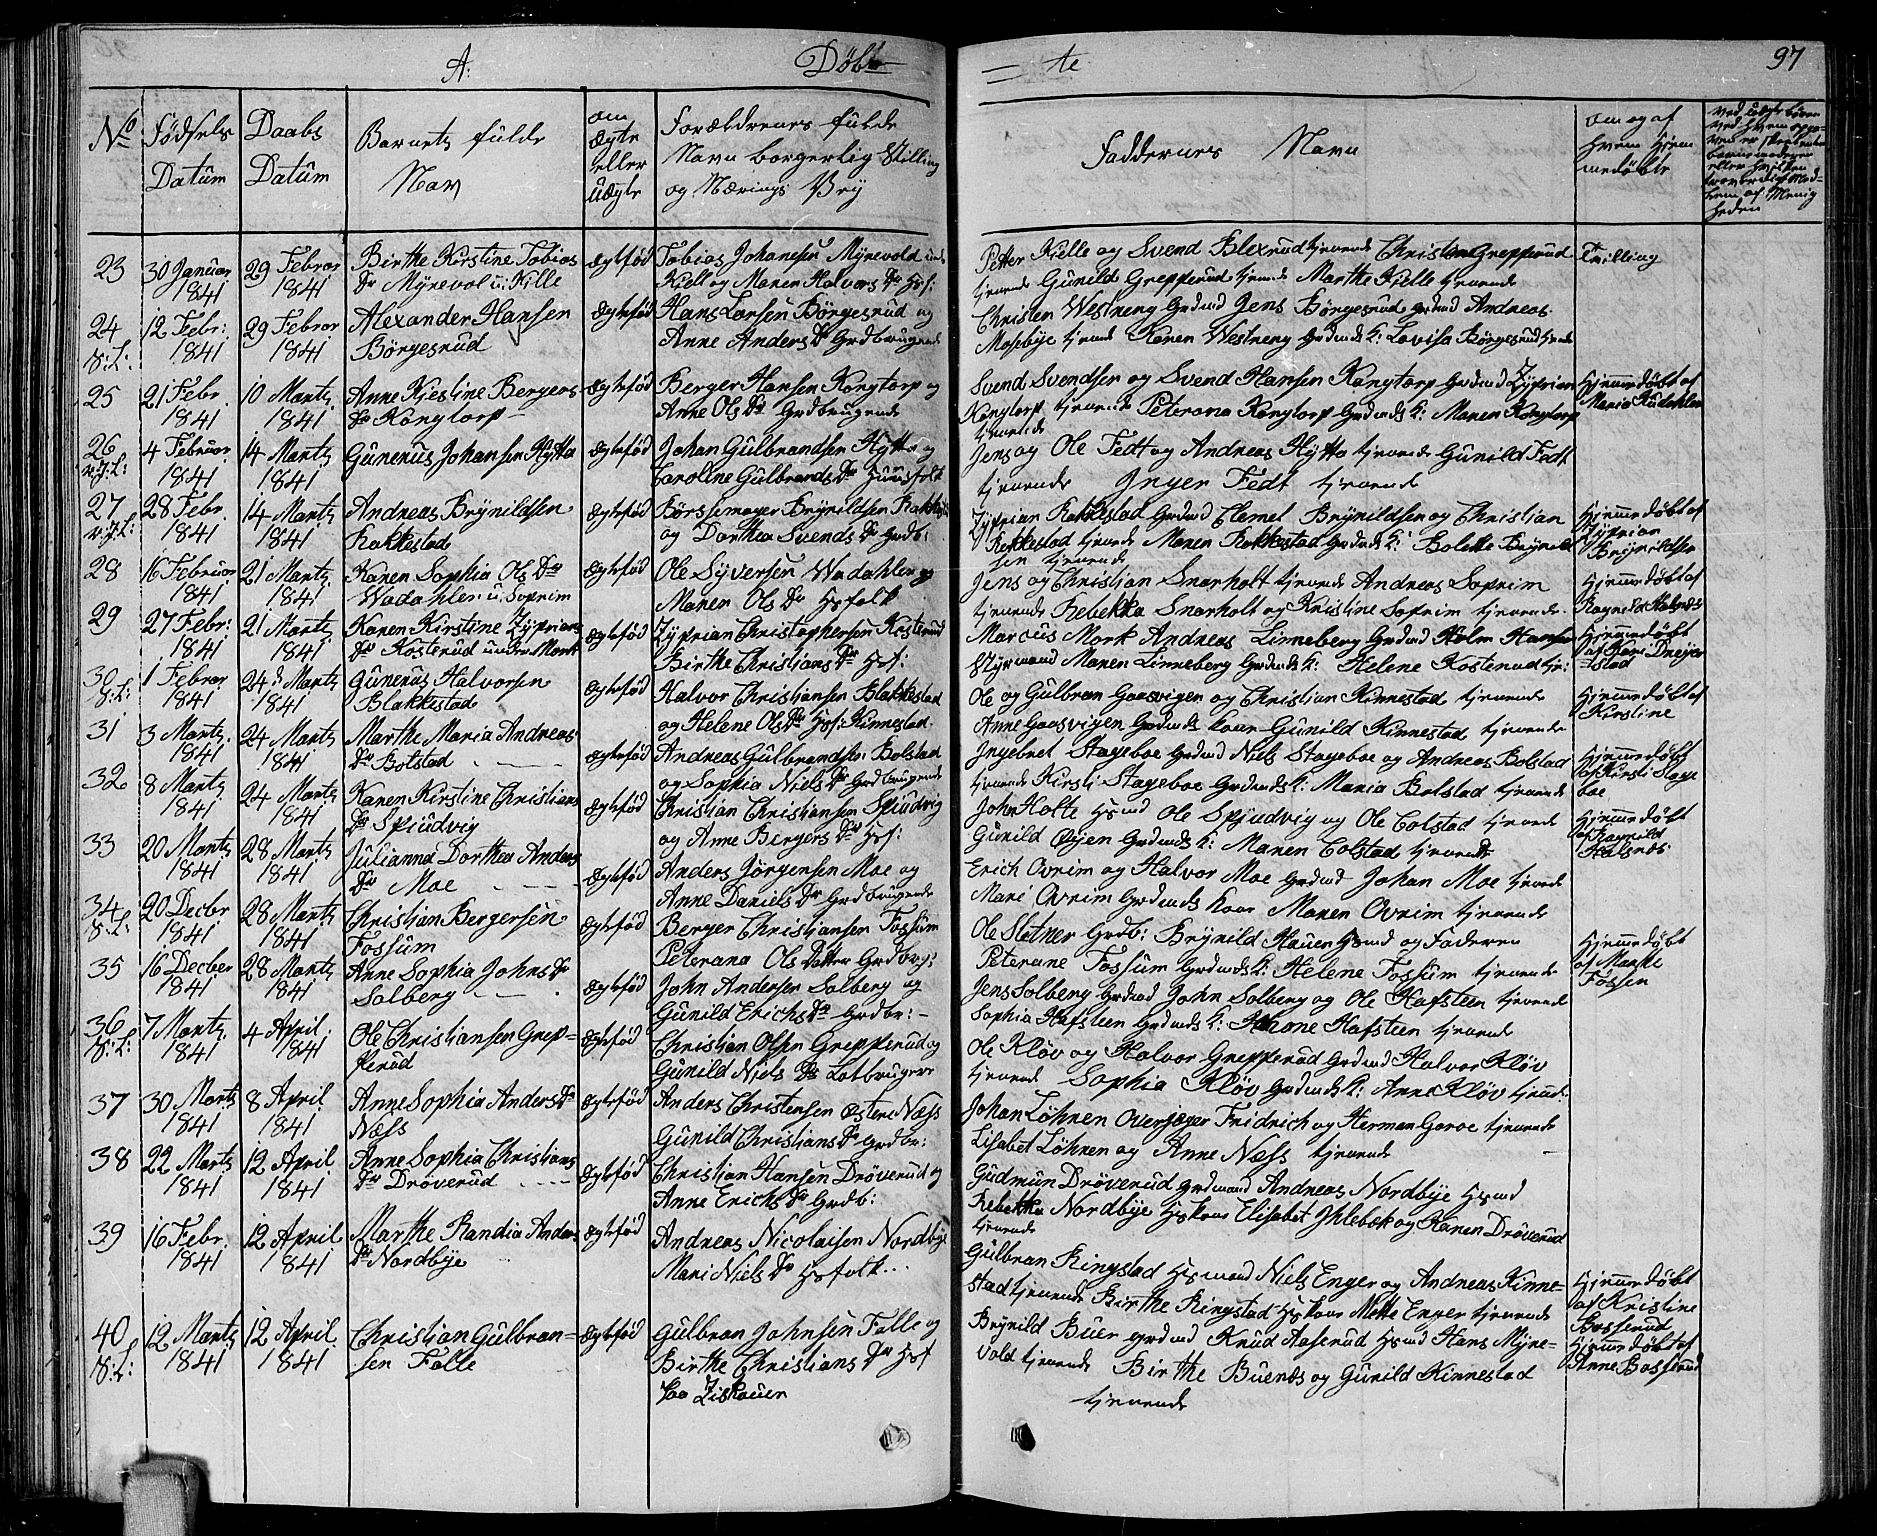 A. Døbte 97
No Fødsels Datum
Daabs Datum
Barnets fulde Nav
om ægte eller uægte
Forældrenes fulde Navn borgerlig Stilling og Nærings Vey
Faddernes Navn
om og af hvem hjemmedøbte
23 30 Januar 1841 29 Februar 1841 Birthe Kirstine Tobias Dr Myrevol u: Kille ægtefød Tobias Johanesen Myrevold under Kiell og Maren Halvors Dr Hsf:
Petter Kielle og Svend Blexrud tjenende Christian Grepperud tjenende Gunild Grepperud tjenende Marthe Kielle tjenende
Trilling
24 V:L: 12 Febr: 1841 29 Februar 1841 Alexander Hansen Børgesrud ægtefød Hans Larsen Børgesrud og Anne Anders Dr Grdbrugende
Christen Westneng Grdmd Jens Børgesrud grdmd Andreas Mosebye tjenende Karen Westneng Grdmds K: Lovisa Børgesrud tjenende
25 21 Febr. 1841 10 Martz 1841 Anne Kiestine Bergers Dr Kongtorp ægtefød Berger Hansen Kongtorp og Anne Ols Dr Grdbrugende
Svend Svendsen og Svend Hansen Kongtorp Grdmd Zyprian Kongtorp tjenende Peterana Kongtorp Grdmds K: Maren Kongtorp tjenende
Hjemmedøbt af Maria Kudahlen
26 v.J.L: 4 Februar 1841 14 Martz 1841 Gunerus Johansen Hytta ægtefød Johan Gulbrandsen Hytta og Caroline Gulbrands Dr Huusfolk
Jens og Ole Fedt og Andreas Hytta tjenende Gunild Fedt tjenende Inger Fedt tjenende
27 v.J.L: 28 Febr. 1841 14 Martz 1841 Andreas Brynildsen Rakkestad ægtefød Børssemager Brynildsen Rakkestad og Dorthea Svends Dr Grdb:
Zyprian Rakkestad Grdmd Clemet Brynildsen og Christian Rakkestad tjenende Maren Rakkestad Grdmds K: Bolette Brynildsen tjenende
Hjemmedøbt af Zyprian Brynildsen
28 16 Februar 1841 21 Martz 1841 Karen Sophia Ols Dr Wadahlen u: Soprim ægtefød Ole Syversen Wadahlen og Maren Ols Dr Hsfolk
Jens og Christian Snarholt tjenende Andreas Soprim tjenende Rebekka Snarholt og Kristine Soprim tjenende
Hjemmedøbt af Ragnild Halsnæs
29 27 Febr: 1841 21 Martz 1841 Karen Kirstine Zyprians Dr Kosterud under Mork ægtefød Zyprian Christophersen Kosterud Birthe Christians Dr Hsf:
Marcus Mork Andreas Linneberg Grdmd Holm Hansen Styrmand Maren Linneberg Grdmds K: Helene Kosterud tj:
Hjemmedøbt af Kari Dreierstad
30 V:L: 1 Februar 1841 24 Martz 1841 Gunerus Halvorsen Blakkestad ægtefød Halvor Christiansen Blakkestad og Helene Ols Dr Hsf: Kinnestad
Ole og Gulbran Gaasvigen og Christian Kinnestad tjenende Anne Gaasvigen Grdmds Kaar Gunild Kinnestad tjenende
Hjemmedøbt af Kirstine
31 3 Martz 1841 24 Martz 1841 Marthe Maria Andreas Dr Bolstad ægtefød Andreas Gulbrandsen Bolstad og Sophia Niels Dr Grdbrugende
Ingebret Stageboe Grdmd Niels Stageboe og Andreas Bolstad tjenende Kirsti Stageboe Grdmds K: Maria Bolstad tjenende
Hjemmedøbt af Kirsti Stageboe
32 8 Martz 1841 24 Martz 1841 Karen Kirstine Christians Dr Spiudvig ægtefød Christian Christiansen Spiudvig og Anne Bergers Dr Hsf:
John Holte Hsmd Ole Spjudvig og Ole Colstad tjenende Gunild Øijen Grdmds K: Maren Colstad tjenende
Hjemmedøbt af Ragnild Halsnæs
33 20 Martz 1841 28 Martz 1841 Julianna Dorthea Anders Dr Moe ægtefød Anders Jørgensen Moe og Anne Daniels Dr Grdbrugende
Erich Ovrim og Halvor Moe Grdmd Johan Moe tjenende Mari Ovrim Grdmds Kaar Maren Ovrim tjenende
34 V:L: 20 Decbr 1841 28 Martz 1841 Christian Bergersen Fossum ægtefød Berger Christiansen Fossum Peterana Ols Datter Grdbrg:
Ole Sletner Grdb: Brynild Hauen Hsmd og Faderen Peterane Fossum Grdmds K: Helene Fossum tjenende
Hjemmedøbt af Marthe Fossen
35 16 Decber 1841 28 Martz 1841 Anne Sophia Johns Dr Solberg ægtefød John Andersen Solberg og Gunild Erichs Dr Grdbr:
Jens Solberg Grdmd John Solberg og Ole Hafsteen tjenende Sophia Hafsteen Grdmds K: Johane Hafsteen tjenende
36 V:L: 7 Martz 1841 4 April 1841 Ole Christiansen Grepperud ægtefød Christian Olsen Grepperud og Gunild Niels Dr Lotbrugere
Ole Kløv og Halvor Grepperud Grdmd Halvor Kløv tjenende Sophia Kløv Grdmds K: Anne Kløv tjende
37 30 Martz 1841 8 April 1841 Anne Sophia Anders Dr Næss ægtefød Anders Christensen østere Næss Gunild Christians Dr Grdbr:
Johan Løhnen Overjeger Fridrich og Herman Goroe tjenende Lisabet Løhnen og Anne Næss tjenende
38 22 Martz 1841 12 April 1841 Anne Sophia Christians Dr Drøverud ægtefød Christian Hansen Drøverud og Anne Erichs Dr Grdb:
Gudmun Drøverud Grdmand Andreas Nordbye Hsmd Rebekka Nordbye Hskone Elisabet Ihlebæk og Karen Drøverud tjenende
39 16 Febr. 1841 12 April 1841 Marthe Randia Anders Dr Nordbye ægtefød Andreas Nicolaisen Nordbye Mari Niels Dr Hsfolk
Gulbran Ringstad Hsmand Niels Enger og Andreas Kinnestad tjenende Birthe Ringstad Hskone Mette Enger tjenende
Hjemmedøbt af Kristine Bosserud
40 V:L: 12 Martz 1841 12 April 1841 Christian Gulbransen Falle ægtefød Gulbran Johnsen Falle og Birthe Christians Dr Hsf
Brynild Buer Grdmd Knud Aaserud Hsmd Hans Myrevold tjenende Birthe Buenæs og Gunild Kinnestad tjenende
Hjemmedøbt af Anne Bosserud